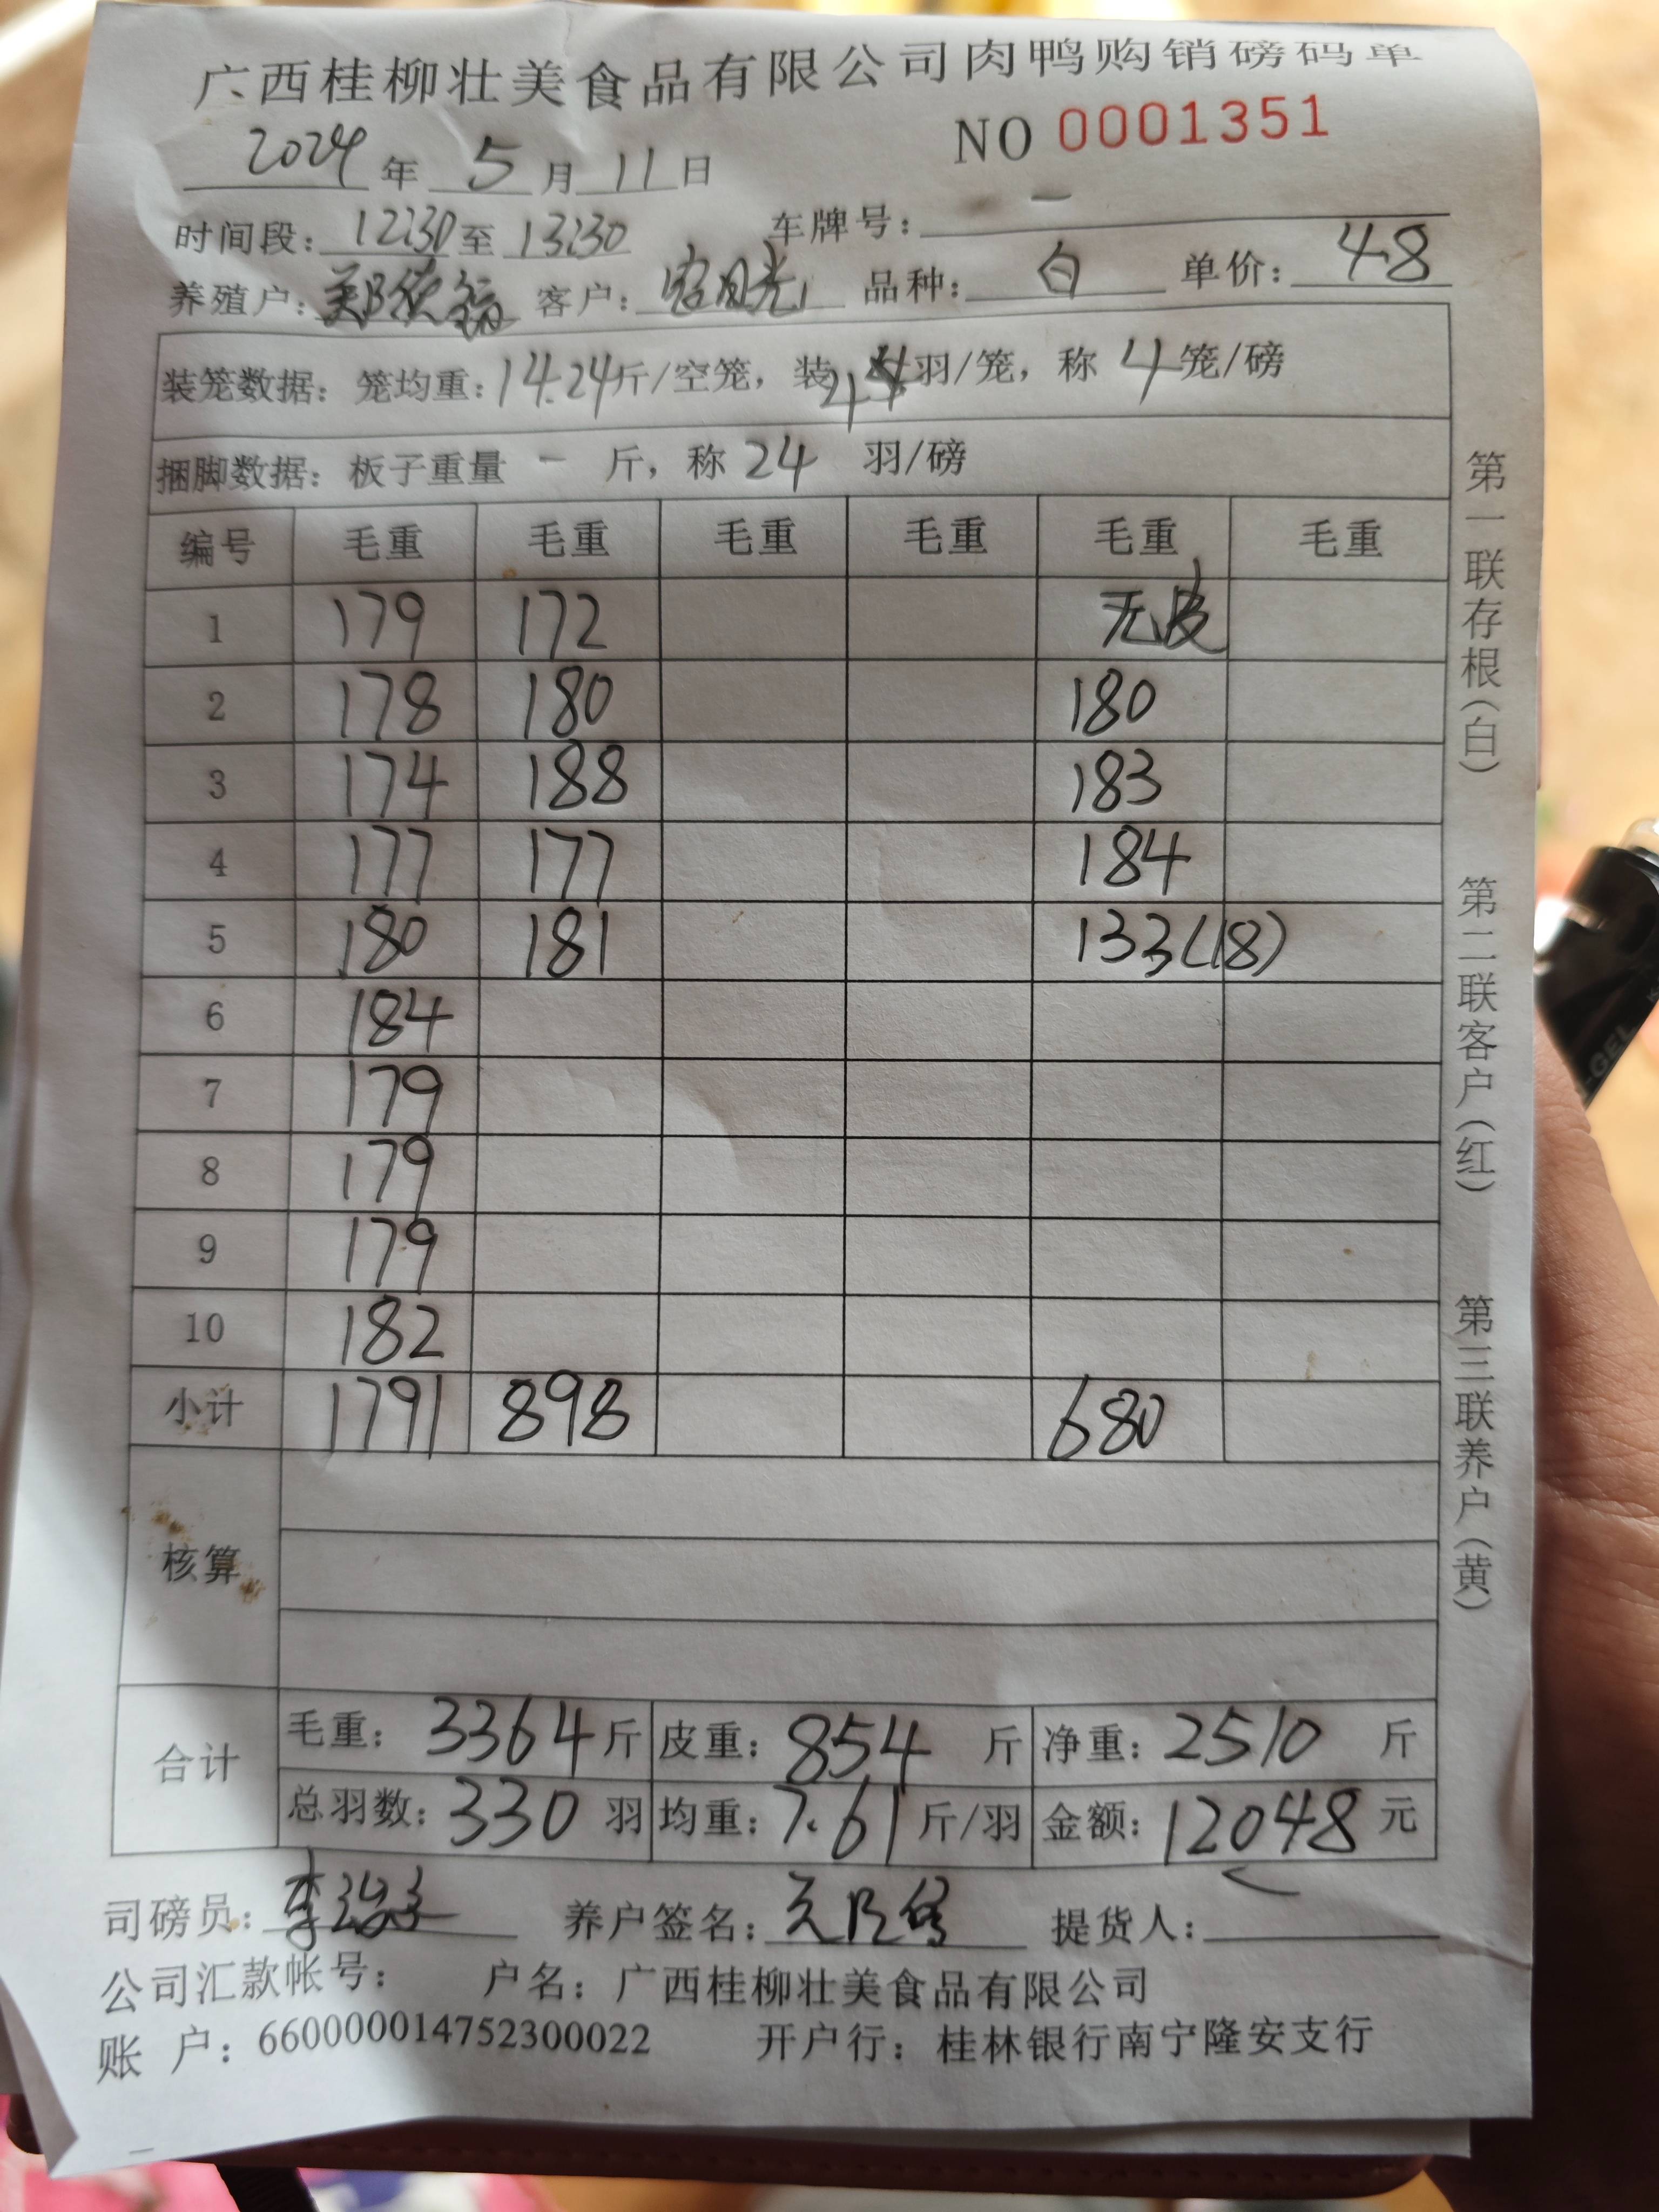 广西桂柳壮美食品有限公司肉鸭购销磅码单
NO 0001351
2024 年 5 月 11 日
时间段: 12:30 至 13:30 车牌号: 一
养殖户: 客户: 品种: 白 单价: 48
装笼数据: 笼均重: 14.24 斤/空笼, 装 羽/笼, 称 4 笼/磅
捆脚数据: 板子重量 一 斤, 称 24 羽/磅
编号 毛重 毛重 毛重 毛重 毛重 毛重
1 179 172 无皮
2 178 180 180
3 174 188 183
4 177 177 184
5 180 181 133(18)
6 184
7 179
8 179
9 179
10 182
小计 1791 898 680
核算
合计
毛重: 3364 斤 皮重: 854 斤 净重: 2510 斤
总羽数: 330 羽 均重: 7.61 斤/羽 金额: 12048 元
司磅员: 养户签名: 提货人:
公司汇款帐号: 户名: 广西桂柳壮美食品有限公司
账 户: 660000014752300022 开户行: 桂林银行南宁隆安支行
第一联存根(白) 第二联客户(红) 第三联养户(黄)